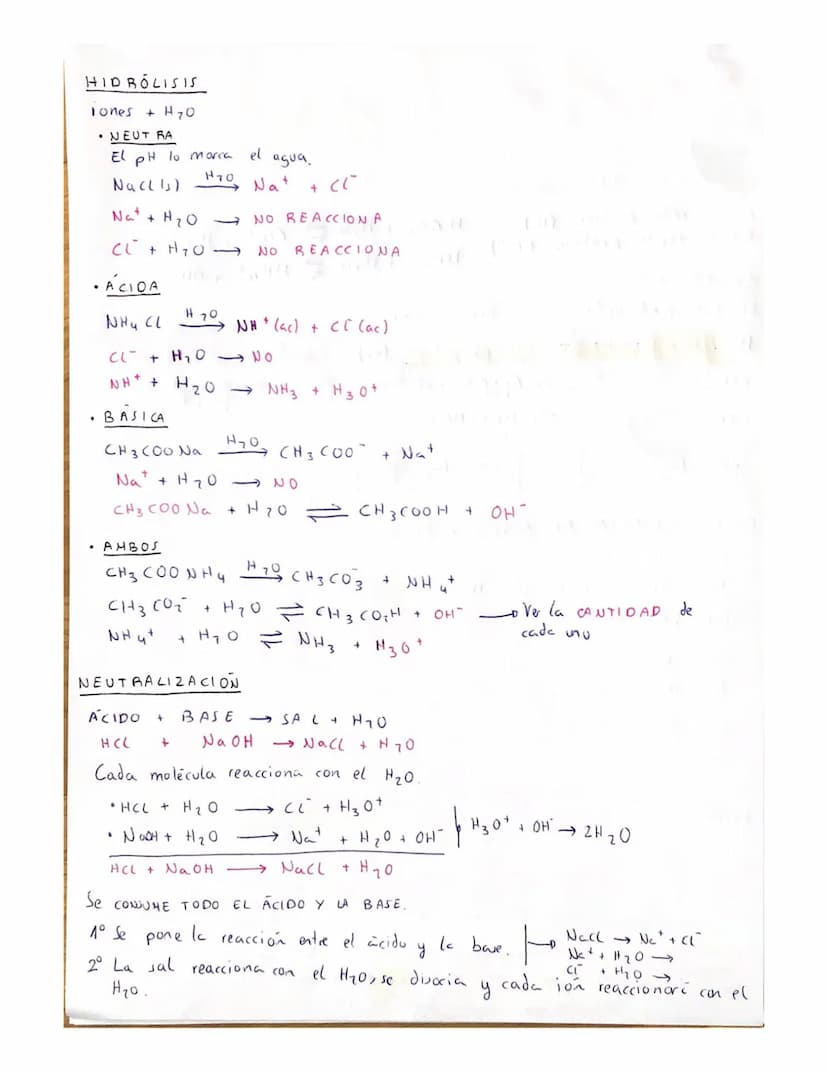 HIDRÓLISIS
iones + H₂O
• NEUTRA
El pH lo marca el agua.
NaCl(s) —H₂O→ Na⁺ + Cl⁻
Na⁺ + H₂O → NO REACCIONA
Cl⁻ + H₂O → NO REACCIONA
• ÁCIDA
NH₄Cl —H₂O→ NH⁺(ac) + Cl⁻(ac)
Cl⁻ + H₂O → NO
NH⁺ + H₂O → NH₃ + H₃O⁺
• BÁSICA
CH₃COONa —H₂O→ CH₃COO⁻ + Na⁺
Na⁺ + H₂O → NO
CH₃COONa + H₂O ⇌ CH₃COOH + OH⁻
• AMBOS
CH₃COONH₄ —H₂O→ CH₃CO₃⁻ + NH₄⁺
CH₃CO₂⁻ + H₂O ⇌ CH₃CO₂H + OH⁻ → Ver la CANTIDAD de
cada uno
NH₄⁺ + H₂O ⇌ NH₃ + H₃O⁺
NEUTRALIZACIÓN
ÁCIDO + BASE → SAL + H₂O
HCl + NaOH → NaCl + H₂O
Cada molécula reacciona con el H₂O.
• HCl + H₂O → Cl⁻ + H₃O⁺
• NaOH + H₂O → Na⁺ + H₂O + OH⁻
H₃O⁺ + OH⁻ → 2H₂O
HCl + NaOH → NaCl + H₂O
Se CONSUME TODO EL ÁCIDO Y LA BASE.
1º Se pone la reacción entre el ácido y la base.
NaCl → Na⁺ + Cl⁻
Na⁺ + H₂O →
Cl⁻ + H₂O →
2º La sal reacciona con el H₂O, se disocia y cada ión reaccionará con el
H₂O.